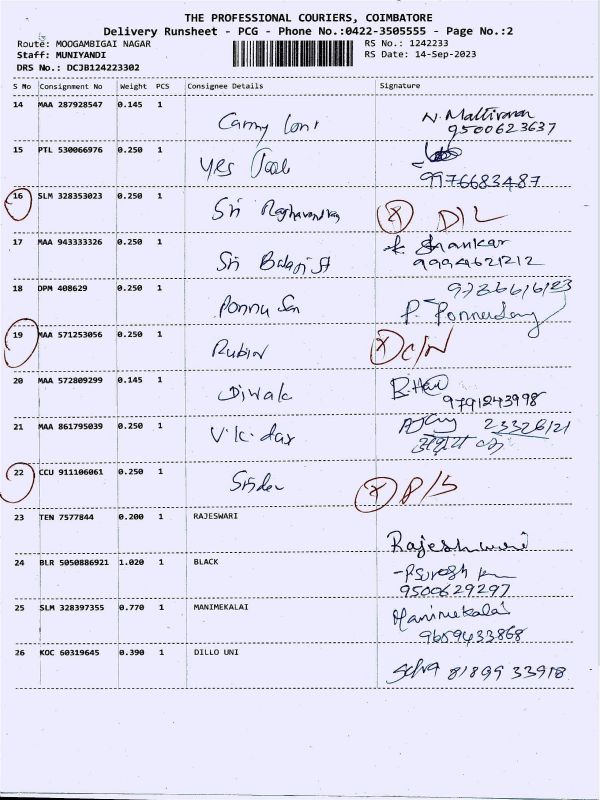 THE PROFESSIONAL COURIERS, COIMBATORE
Delivery Runsheet - PCG - Phone No.:0422-3505555 - Page No.:2
Route: MOOGAMBIGAI NAGAR RS No.: 1242233
Staff: MUNIYANDI RS Date: 14-Sep-2023
DRS No.: DCJB124223302
S No Consignment No Weight PCS Consignee Details Signature
14 MAA 287928547 0.145 1
9500623637
15 PTL 530066976 0.250 1 yes
9976683487
16 SLM 328353023 0.250 1 Sri D/L
17 MAA 943333326 0.250 1 Sri Balaji St Shankar
9994621212
18 DPM 408629 0.250 1 Ponnu
19 MAA 571253056 0.250 1 Rubin C/N
20 MAA 572809299 0.145 1 Diwak
9791243998
21 MAA 861795039 0.250 1 V.K.
22 CCU 911106061 0.250 1
23 TEN 7577844 0.200 1 RAJESWARI
24 BLR 5050886921 1.020 1 BLACK
9500629297
25 SLM 328397355 0.770 1 MANIMEKALAI Manimekalai
9659433868
26 KOC 60319645 0.390 1 DILLO UNI Selva 81899 33918